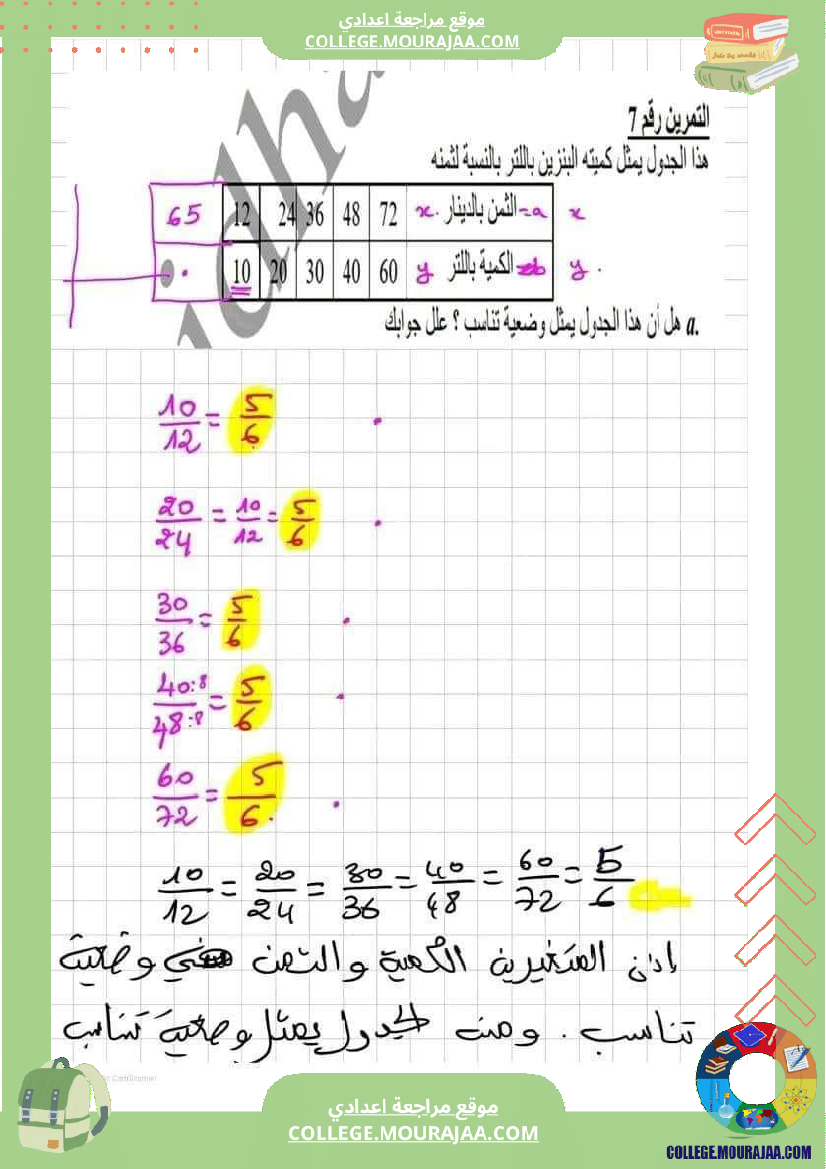 موقع مراجعة اعدادي
COLLEGE.MOURAJAA.COM
التمرين رقم 7
هذا الجدول يمثل كميته البنزين باللتر بالنسبة لثمنه
65 12 24 36 48 72 x. الثمن بالدينار =a x
. 10 20 30 40 60 y الكمية باللتر y .
a. هل أن هذا الجدول يمثل وضعية تناسب ؟ علل جوابك
10/12 = 5/6
20/24 = 10/12 = 5/6
30/36 = 5/6
40:8/48:8 = 5/6
60/72 = 5/6
10/12 = 20/24 = 30/36 = 40/48 = 60/72 = 5/6
إذن المتغيرين الكمية والثمن في وضعية
تناسب . ومنه الجدول يمثل وضعية تناسب
CamScanner
موقع مراجعة اعدادي
COLLEGE.MOURAJAA.COM
COLLEGE.MOURAJAA.COM